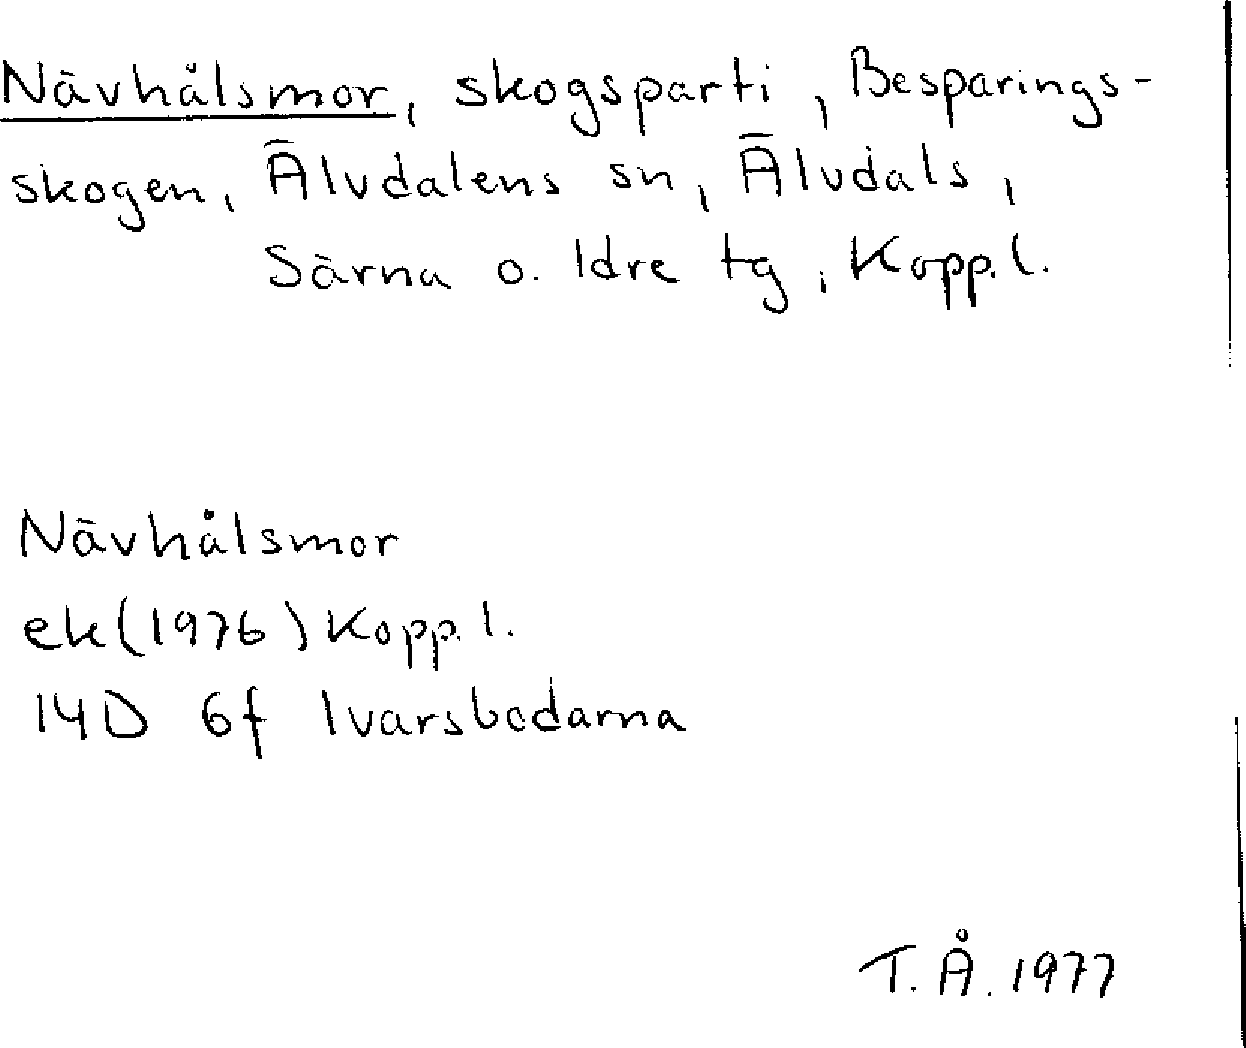 Nävhålsmor, skogsparti, Besparings-
skogen, Älvdalens sn, Älvdals,
Särna o. Idre tg, Kopp.l.
Nävhålsmor
ek(1976) Kopp.l.
14D 6f Ivarsbodarna
T.Å. 1977